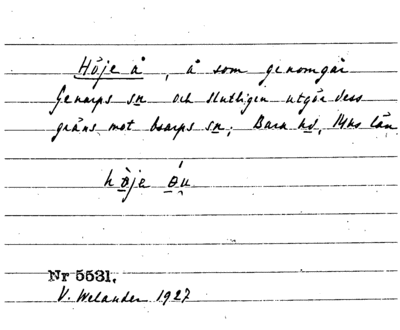 Höje å, å som genomgår
Genarps sn och slutligen utgör dess
gräns mot Esarps sn; Bara hd, Mhs län
höje ǫu
Nr 5531.
V. Welander 1927